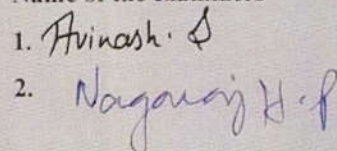 1. Avinash. S
2. Nagaraj H.P